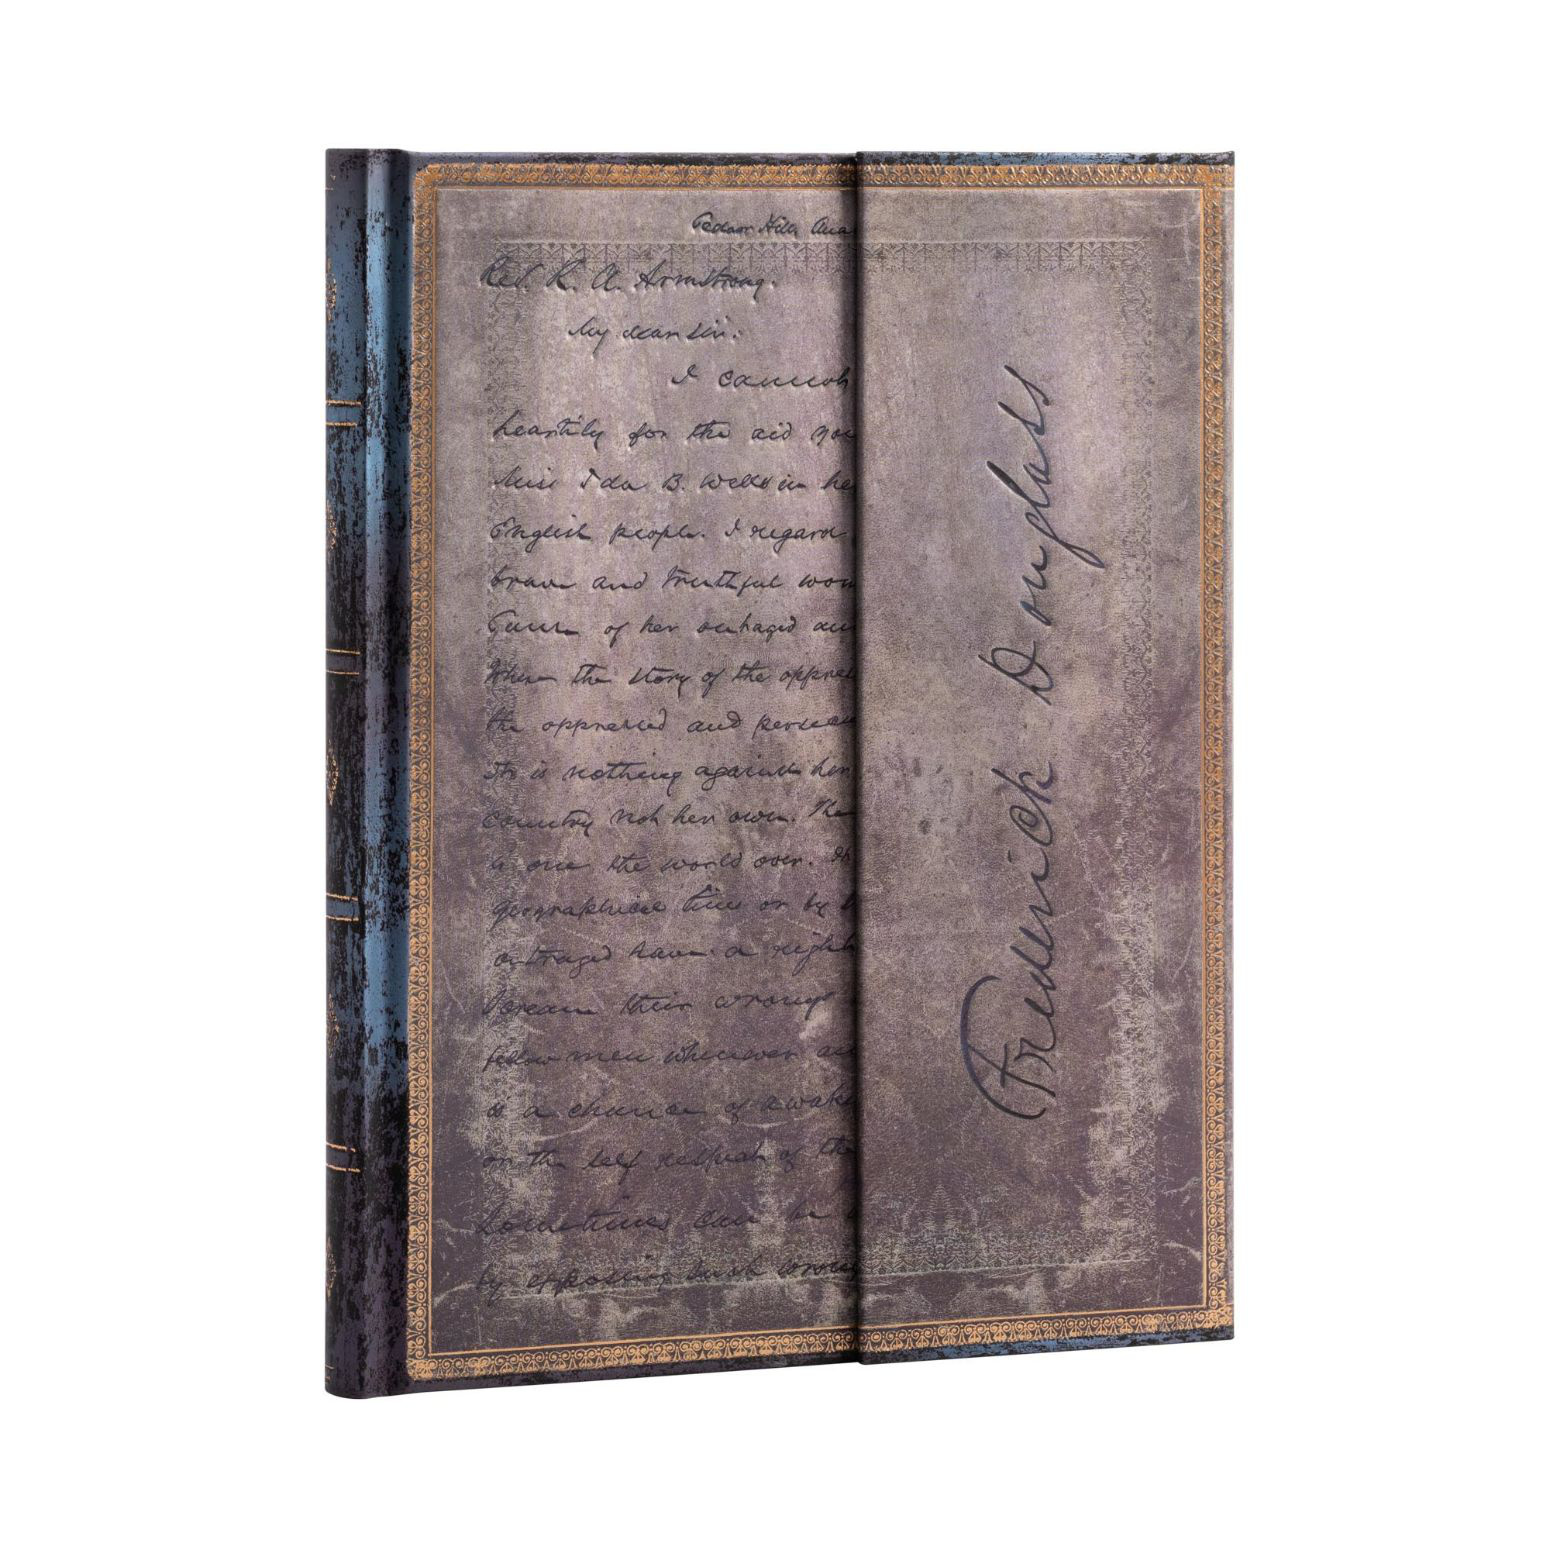 Cedar Hill Ana
Rev. R. A. Armstrong.
My dear Sir:
I cannot
heartily for the aid you
Miss Ida B. Wells in he
English people. I regard
brave and truthful wom
Cause of her outraged an
When the story of the oppres
the oppressed and persecu
It is nothing against her
country not her own. The
is one the world over.
geographical lines or by
outraged have a right
scream their wrongs
fellow men wherever
is a chance of awake
or the self respect of the
Sometimes can be
by exposing such wrong
Frederick Douglass